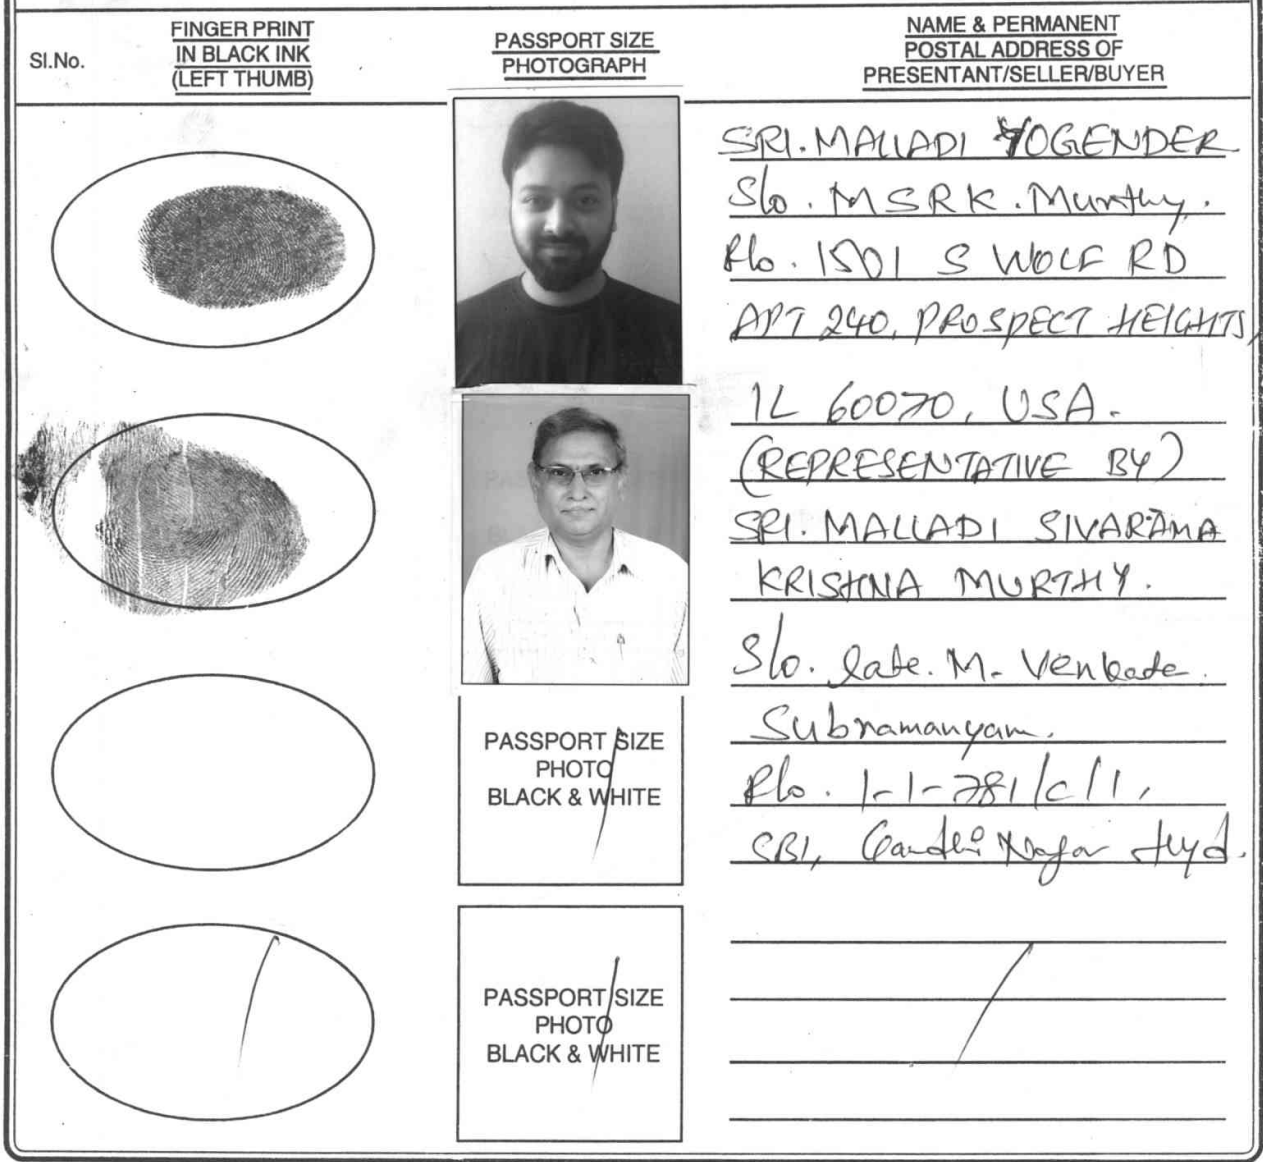 Sl.No.
FINGER PRINT
IN BLACK INK
(LEFT THUMB)
PASSPORT SIZE
PHOTOGRAPH
NAME & PERMANENT
POSTAL ADDRESS OF
PRESENTANT/SELLER/BUYER
SRI. MALLADI YOGENDER
S/o. MSRK. Murthy.
R/o. 1501 S WOLF RD
APT 240, PROSPECT HEIGHTS,
IL 60070, USA.
(REPRESENTATIVE BY)
SRI. MALLADI SIVARAMA
KRISHNA MURTHY.
S/o. late. M. Venkata
Subramanyam.
R/o. 1-1-781/c/1,
SBI, Gandhi Nagar Hyd.
PASSPORT SIZE
PHOTO
BLACK & WHITE
PASSPORT SIZE
PHOTO
BLACK & WHITE